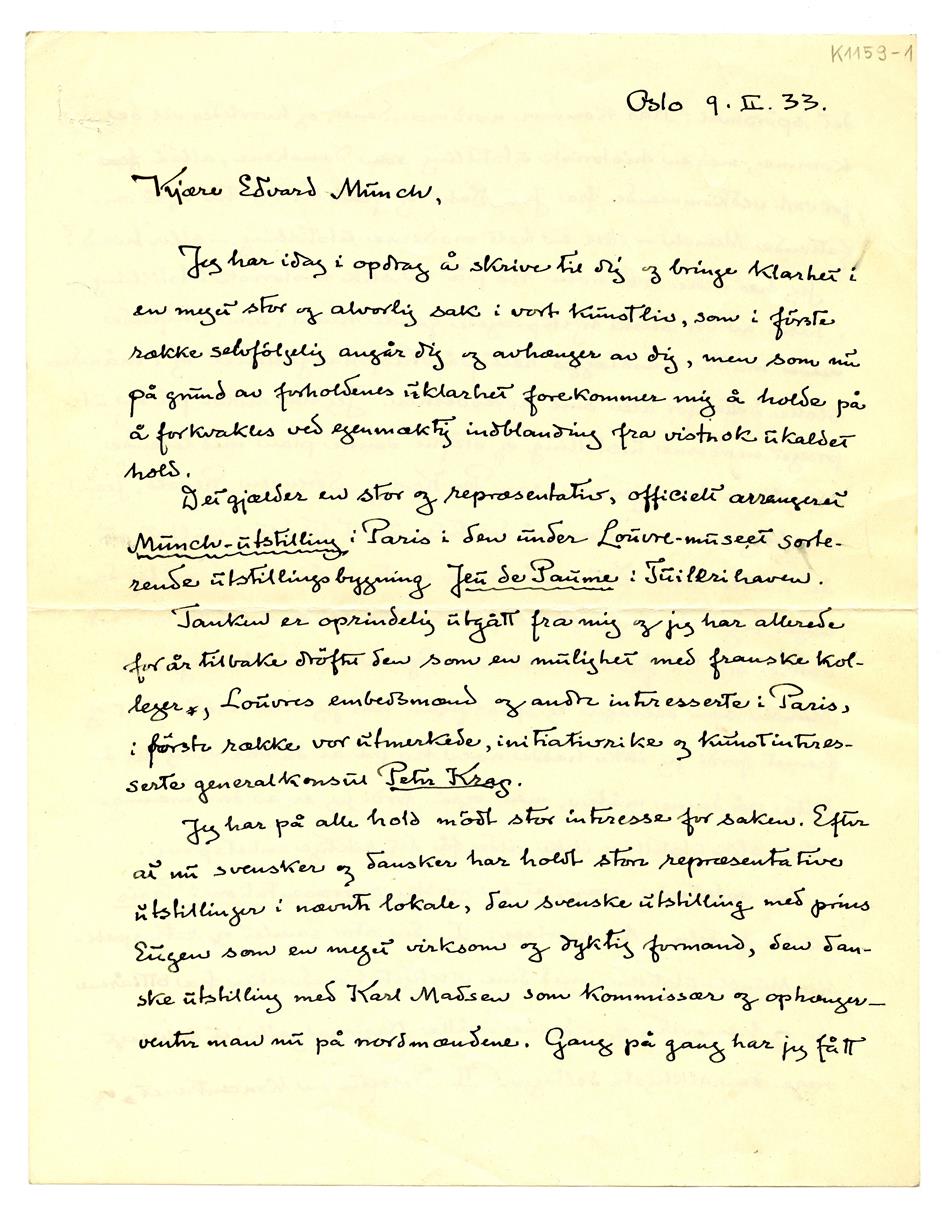 K1159-1
Oslo 9. II. 33.
Kjære Edvard Munch,
Jeg har idag i opdrag å skrive til dig og bringe klarhet i
en meget stor og alvorlig sak i vort kunstliv, som i første
række selvfølgelig angår dig og avhænger av dig, men som nu
på grund av forholdenes uklarhet forekommer mig å holde på
å forkvakles ved egenmæktig indblanding fra vistnok ukaldet
hold.
Det gjælder en stor og repræsentativ, officielt arrangeret
Munch-utstilling i Paris i den under Louvre-museet sorte-
rende utstillingsbygning Jeu de Paume i Tuilerihaven.
Tanken er oprindelig utgått fra mig og jeg har allerede
for år tilbake drøftet den som en mulighet med franske kol-
leger, Louvres embedsmænd og andre interesserte i Paris,
i første række vor utmerkede, initiativrike og kunstinteres-
serte generalkonsul Peter Krag.
Jeg har på alle hold mødt stor interesse for saken. Efter
at nu svensker og dansker har holdt store repræsentative
utstillinger i nævnte lokale, den svenske utstilling med prins
Eugen som en meget virksom og dyktig formand, den dan-
ske utstilling med Karl Madsen som kommissær og ophænger—
venter man nu på nordmændene. Gang på gang har jeg fått